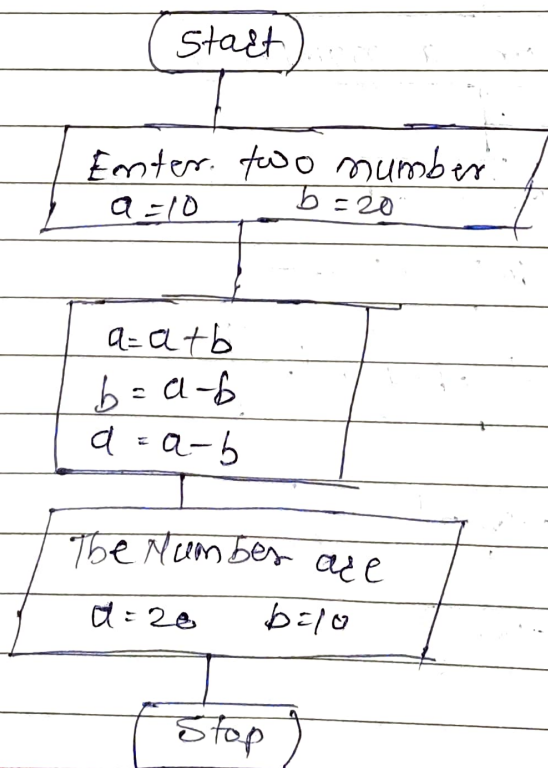 Start
Enter two number
a=10 b=20
a=a+b
b=a-b
a=a-b
The Number are
a=20 b=10
Stop